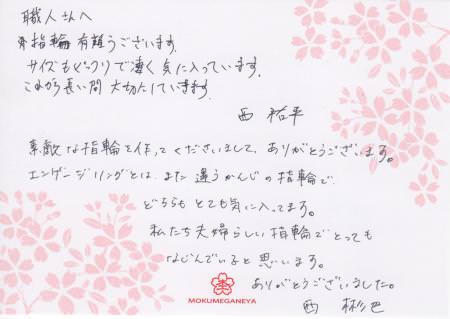 職人さんへ
指輪有難うございます。
サイズもぴったりで凄く気に入っています。
これから長い間大切にしていきます。
西 裕平
素敵な指輪を作ってくださいまして、ありがとうございます。
エンゲージリングとは、また違うかんじの指輪で
どちらもとても気に入ってます。
私たち夫婦らしい指輪でとっても
なじんでいると思います。
ありがとうございました。
西
MOKUMEGANEYA